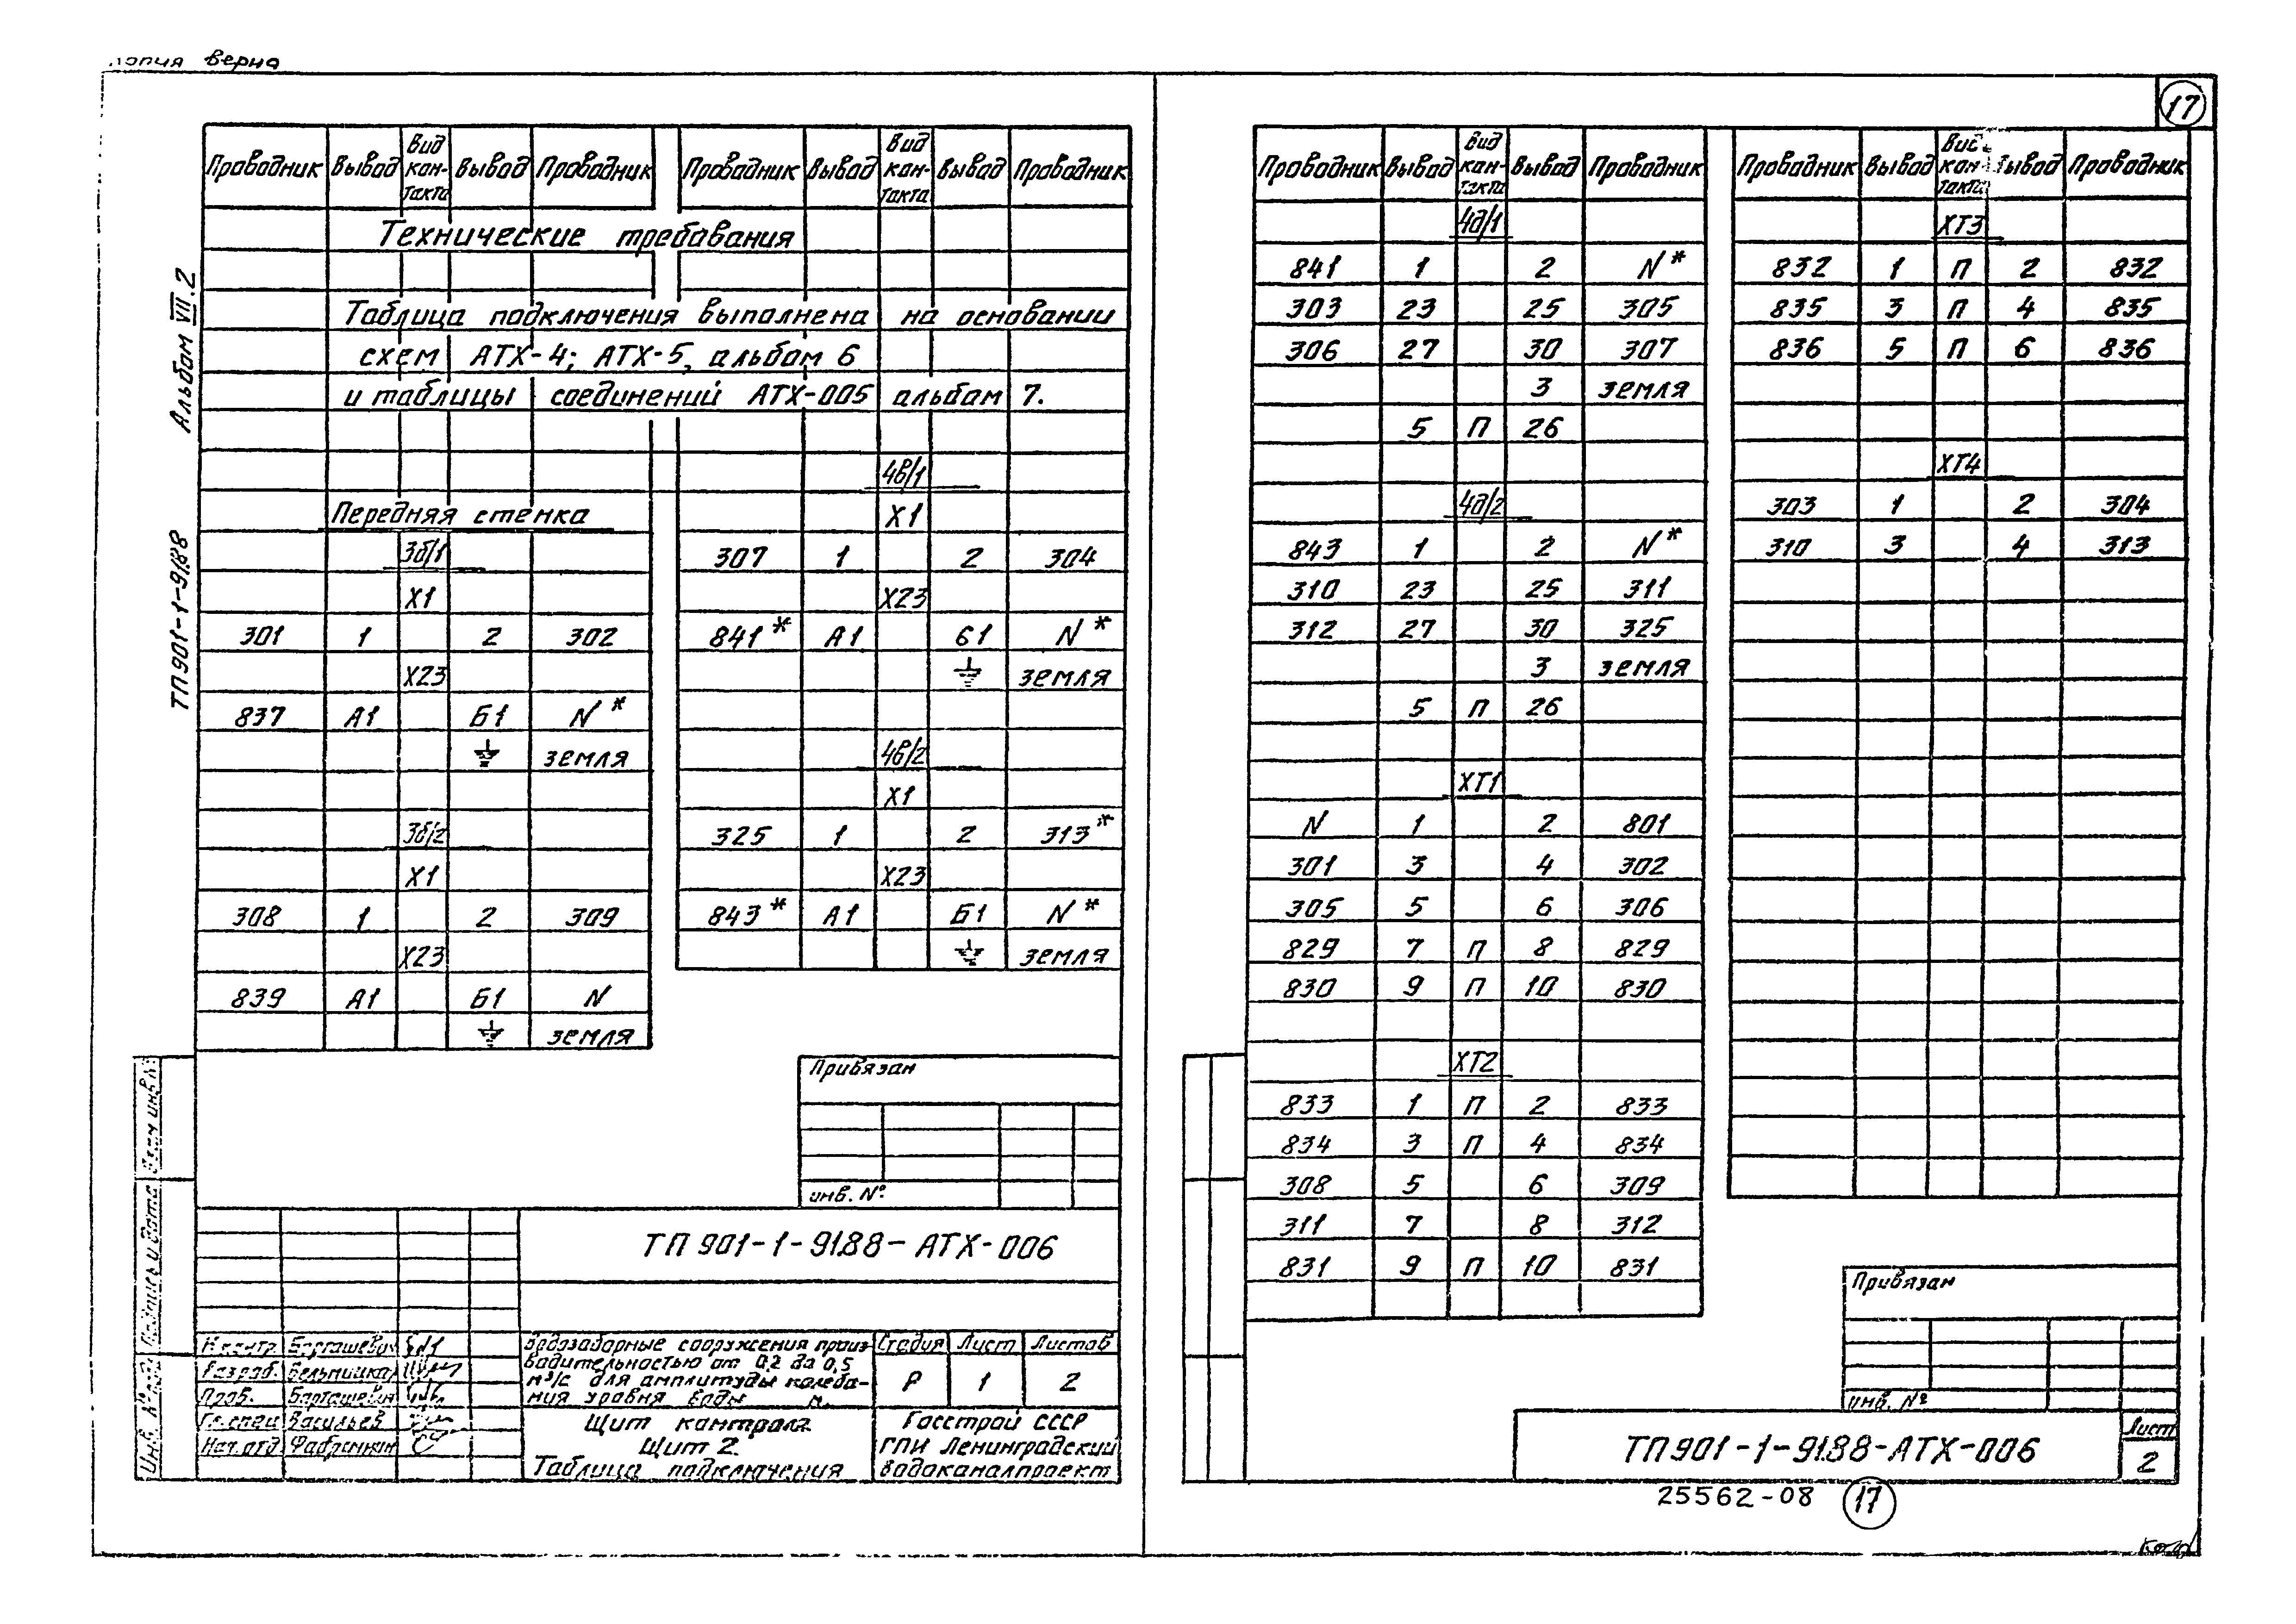 копия верна
17
Альбом VII.2
ТП901-1-91.88
Проводник Вывод Вид кон-такта Вывод Проводник
Технические требования
Таблица подключения выполнена на основании
схем АТХ-4; АТХ-5, альбом 6
и таблицы соединений АТХ-005 альбом 7.
Передняя стенка
3б/1
X1
301 1 2 302
X23
837 А1 Б1 N*
⏚ земля
3б/2
X1
308 1 2 309
X23
839 А1 Б1 N
⏚ земля
Проводник Вывод Вид кон-такта Вывод Проводник
4в/1
X1
307 1 2 304
X23
841* А1 Б1 N*
⏚ земля
4в/2
X1
325 1 2 313*
X23
843* А1 Б1 N*
⏚ земля
Привязан
инв. №
ТП 901-1-91.88-АТХ-006
Н.контр.
Разраб.
Пров.
Гл.спец Васильев
Нач.отд
Водозаборные сооружения произ-
водительностью от 0,2 до 0,5
м³/с для амплитуды колеба-
ния уровня воды м.
Стадия Лист Листов
Р 1 2
Щит контроля
Щит 2
Таблица подключения
Госстрой СССР
ГПИ Ленинградский
Водоканалпроект
Инв. № Подпись и дата Взам инв №
Проводник Вывод Вид кон-такта Вывод Проводник
4д/1
841 1 2 N*
303 23 25 305
306 27 30 307
3 земля
5 П 26
4д/2
843 1 2 N*
310 23 25 311
312 27 30 325
3 земля
5 П 26
XT1
N 1 2 801
301 3 4 302
305 5 6 306
829 7 П 8 829
830 9 П 10 830
XT2
833 1 П 2 833
834 3 П 4 834
308 5 6 309
311 7 8 312
831 9 П 10 831
Проводник Вывод Вид кон-такта Вывод Проводник
XT3
832 1 П 2 832
835 3 П 4 835
836 5 П 6 836
XT4
303 1 2 304
310 3 4 313
Привязан
инв. №
ТП901-1-91.88-АТХ-006
Лист
2
25562-08 17